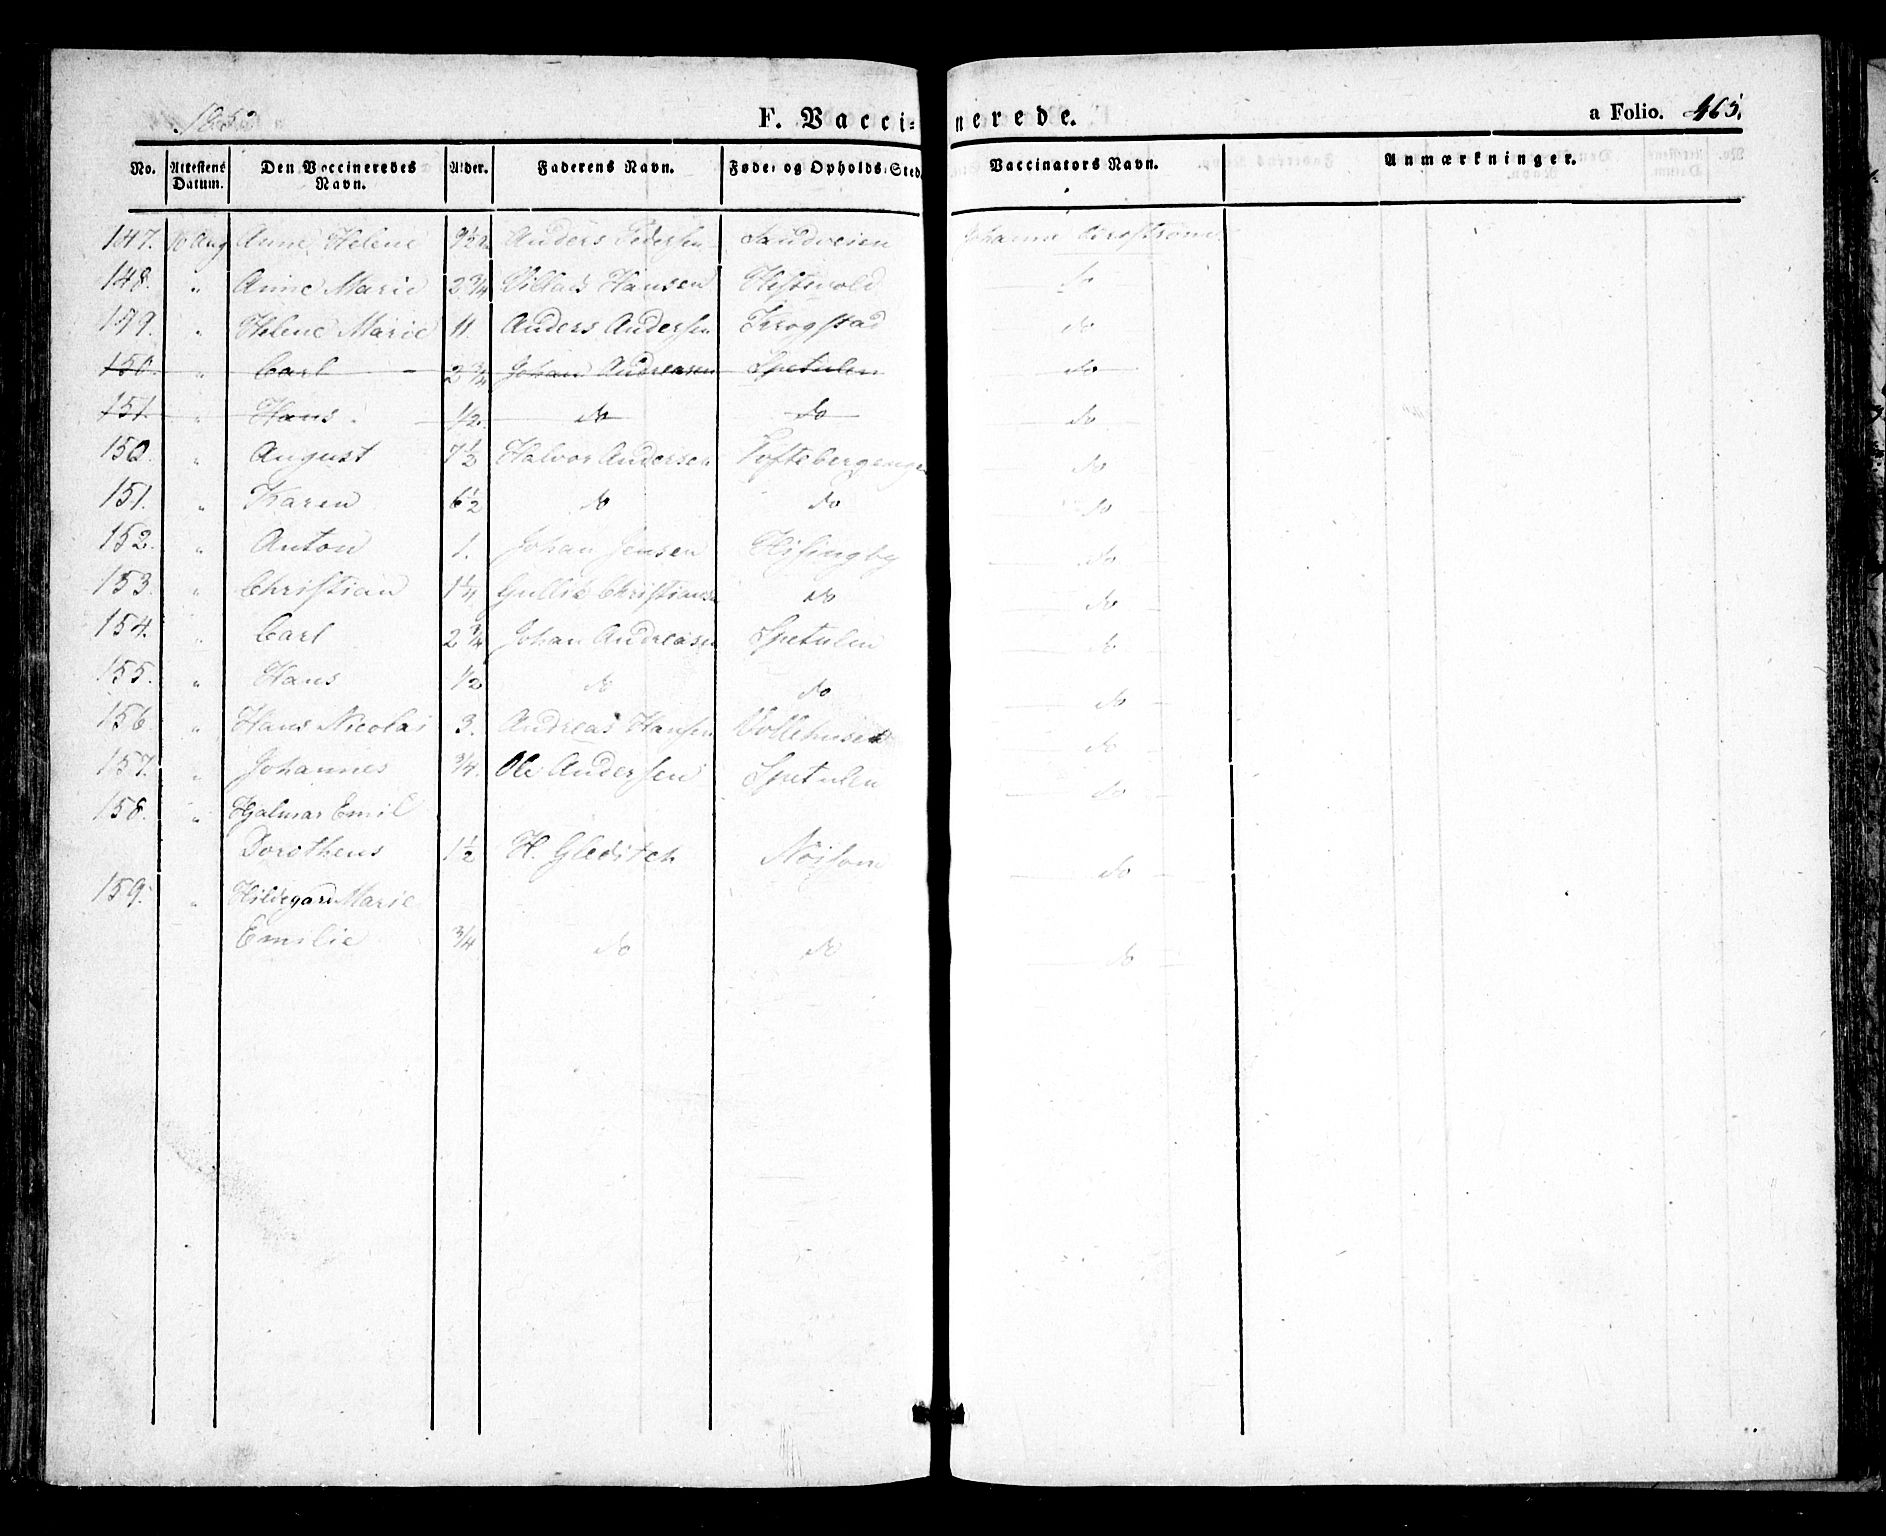 1852
F. Vaccinerede.
a Folio. 465.
No. Attestens Datum. Den Vaccineredes Navn. Alder. Faderens Navn. Føde- og Opholds-Sted. Vaccinators Navn. Anmærkninger.
147. 10 Aug Anne Helene 9½ Anders Pedersen Sandveien Johanne
148. " Anne Marie 2¾ Villads Hansen Heftevold do
149. " Helene Marie 11. Anders Andersen Krogstad do
150. " Carl 2¾ Johan Andreasen Spetalen do
151. " Hans. ½. do do do
150. " August 7½ Halvor Andersen Toftebergengen do
151. " Karen 6½ do do do
152. " Anton 1. Johan Jensen Hisingby do
153. " Christian 1¼ Gullik Christiansen do do
154. " Carl 2¾ Johan Andreasen Spetalen do
155. " Hans ½ do do do
156. " Hans Nicolai 3. Andreas Hansen Vollehuset do
157. " Johannes ¾. Ole Andersen Spetalen do
158. " Hjalmar Emil
Dorotheus 1½ H. Gleditch do
159. " Hildegard Marie
Emilie ¾ do do do